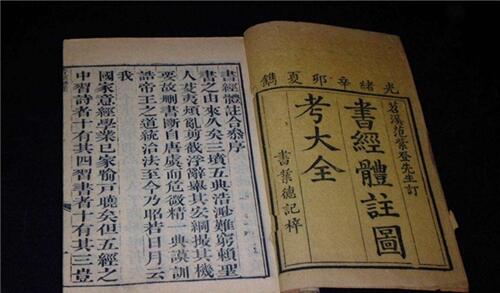 光緒辛卯夏鐫
苕溪范紫登先生訂
書經體註圖
考大全
書業德記梓
書經體註合參序
書之由來久矣三墳五典浩渺難窮賴聖
人芟夷煩亂剪截浮辭舉其宏綱撮其機
要故刪書斷自唐虞而危微精一典謨訓
誥帝王之道統治法至今乃昭若日月云
我
國家意經學業已家喻戶曉矣但五經之
中習詩者十有其四習書者十有其三豈